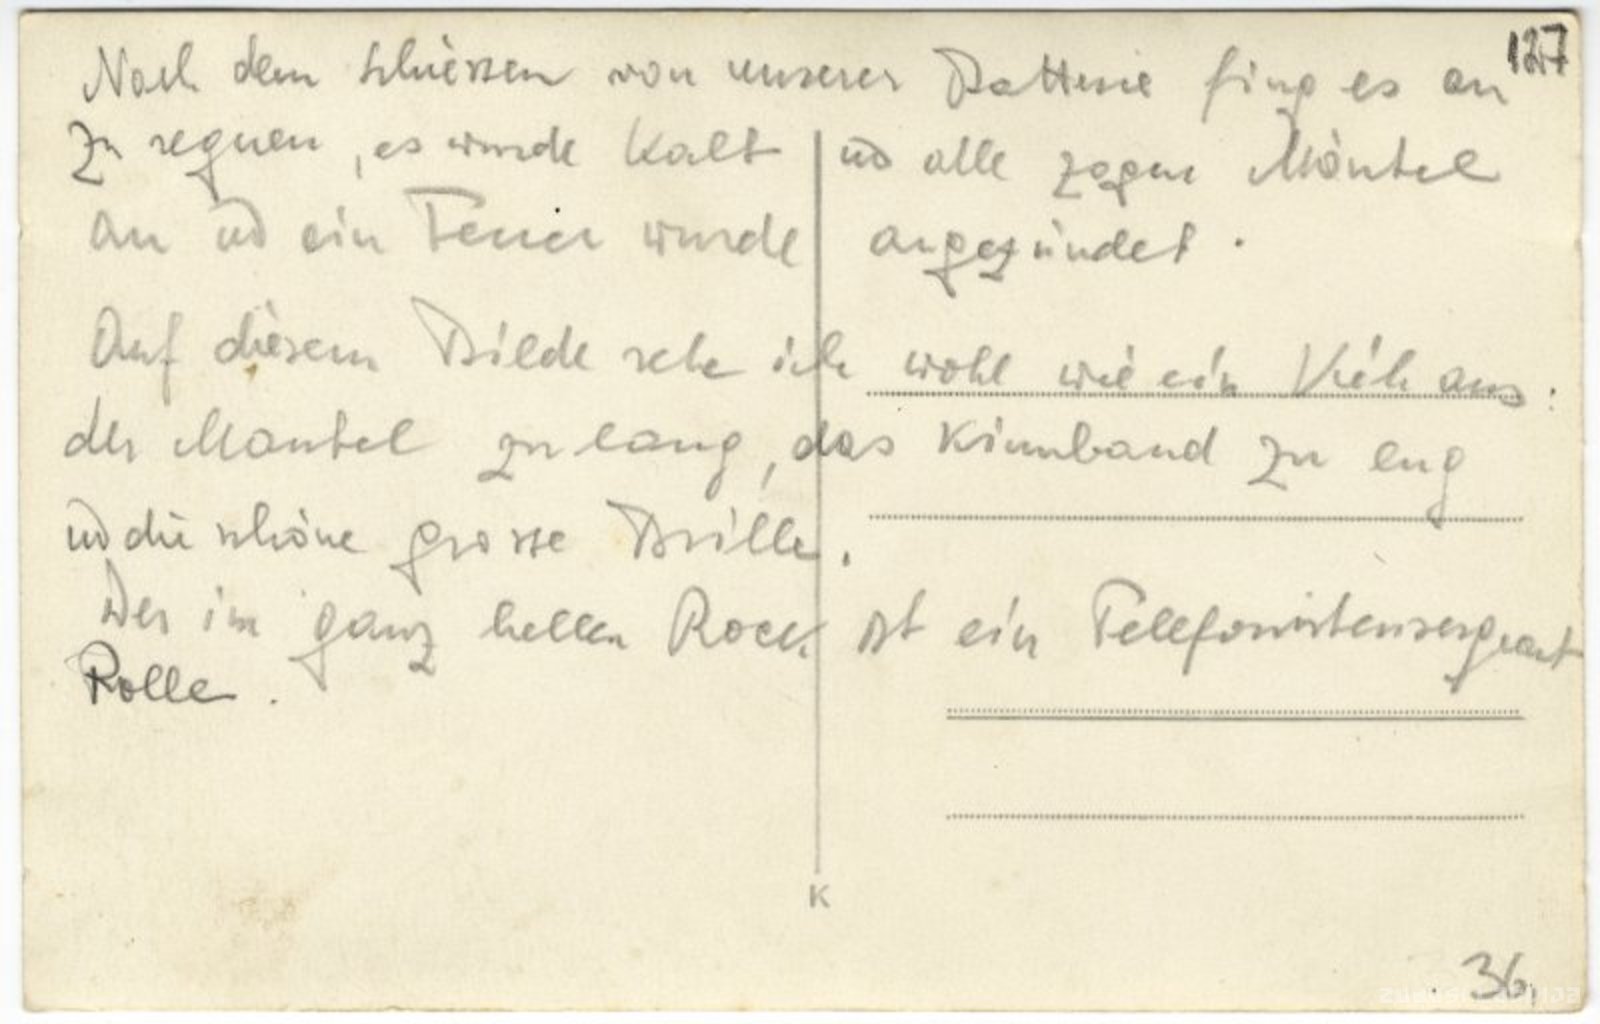 127
Nach dem schiessen von unserer Batterie fing es an
zu regnen, es wurde Kalt ud alle zogen Mäntel
an ud ein Feuer wurde angezündet.
Auf diesem Bilde sehe ich wohl wie ein Vieh aus:
der Mantel zu lang, das Kinnband zu eng
ud die schöne grosse Brille.
Der im ganz hellen Rock ist ein Telefonistensergeant
Rolle.
K
36